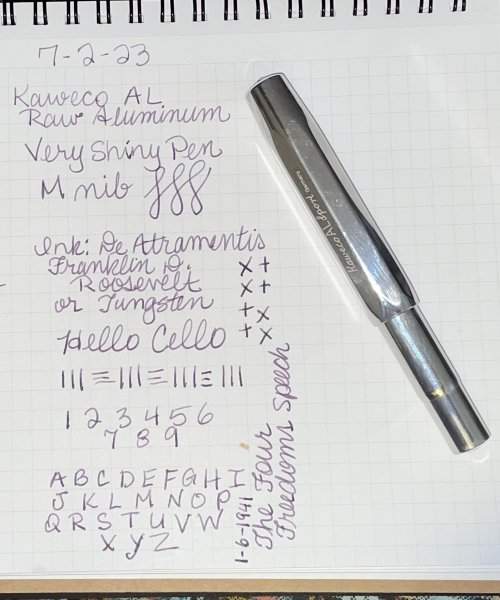 7-2-23
Kaweco AL
Raw Aluminum
Very Shiny Pen
M nib fff
Ink: De Atramentis
Franklin D.
Roosevelt
or Tungsten
x +
x +
+ x
+ x
Hello Cello
||| ≡ ||| ≡ ||| ≡ |||
1 2 3 4 5 6
7 8 9
A B C D E F G H I
J K L M N O P
Q R S T U V W
X Y Z
1-6-1941
The Four
Freedoms Speech
Kaweco AL Sport Germany